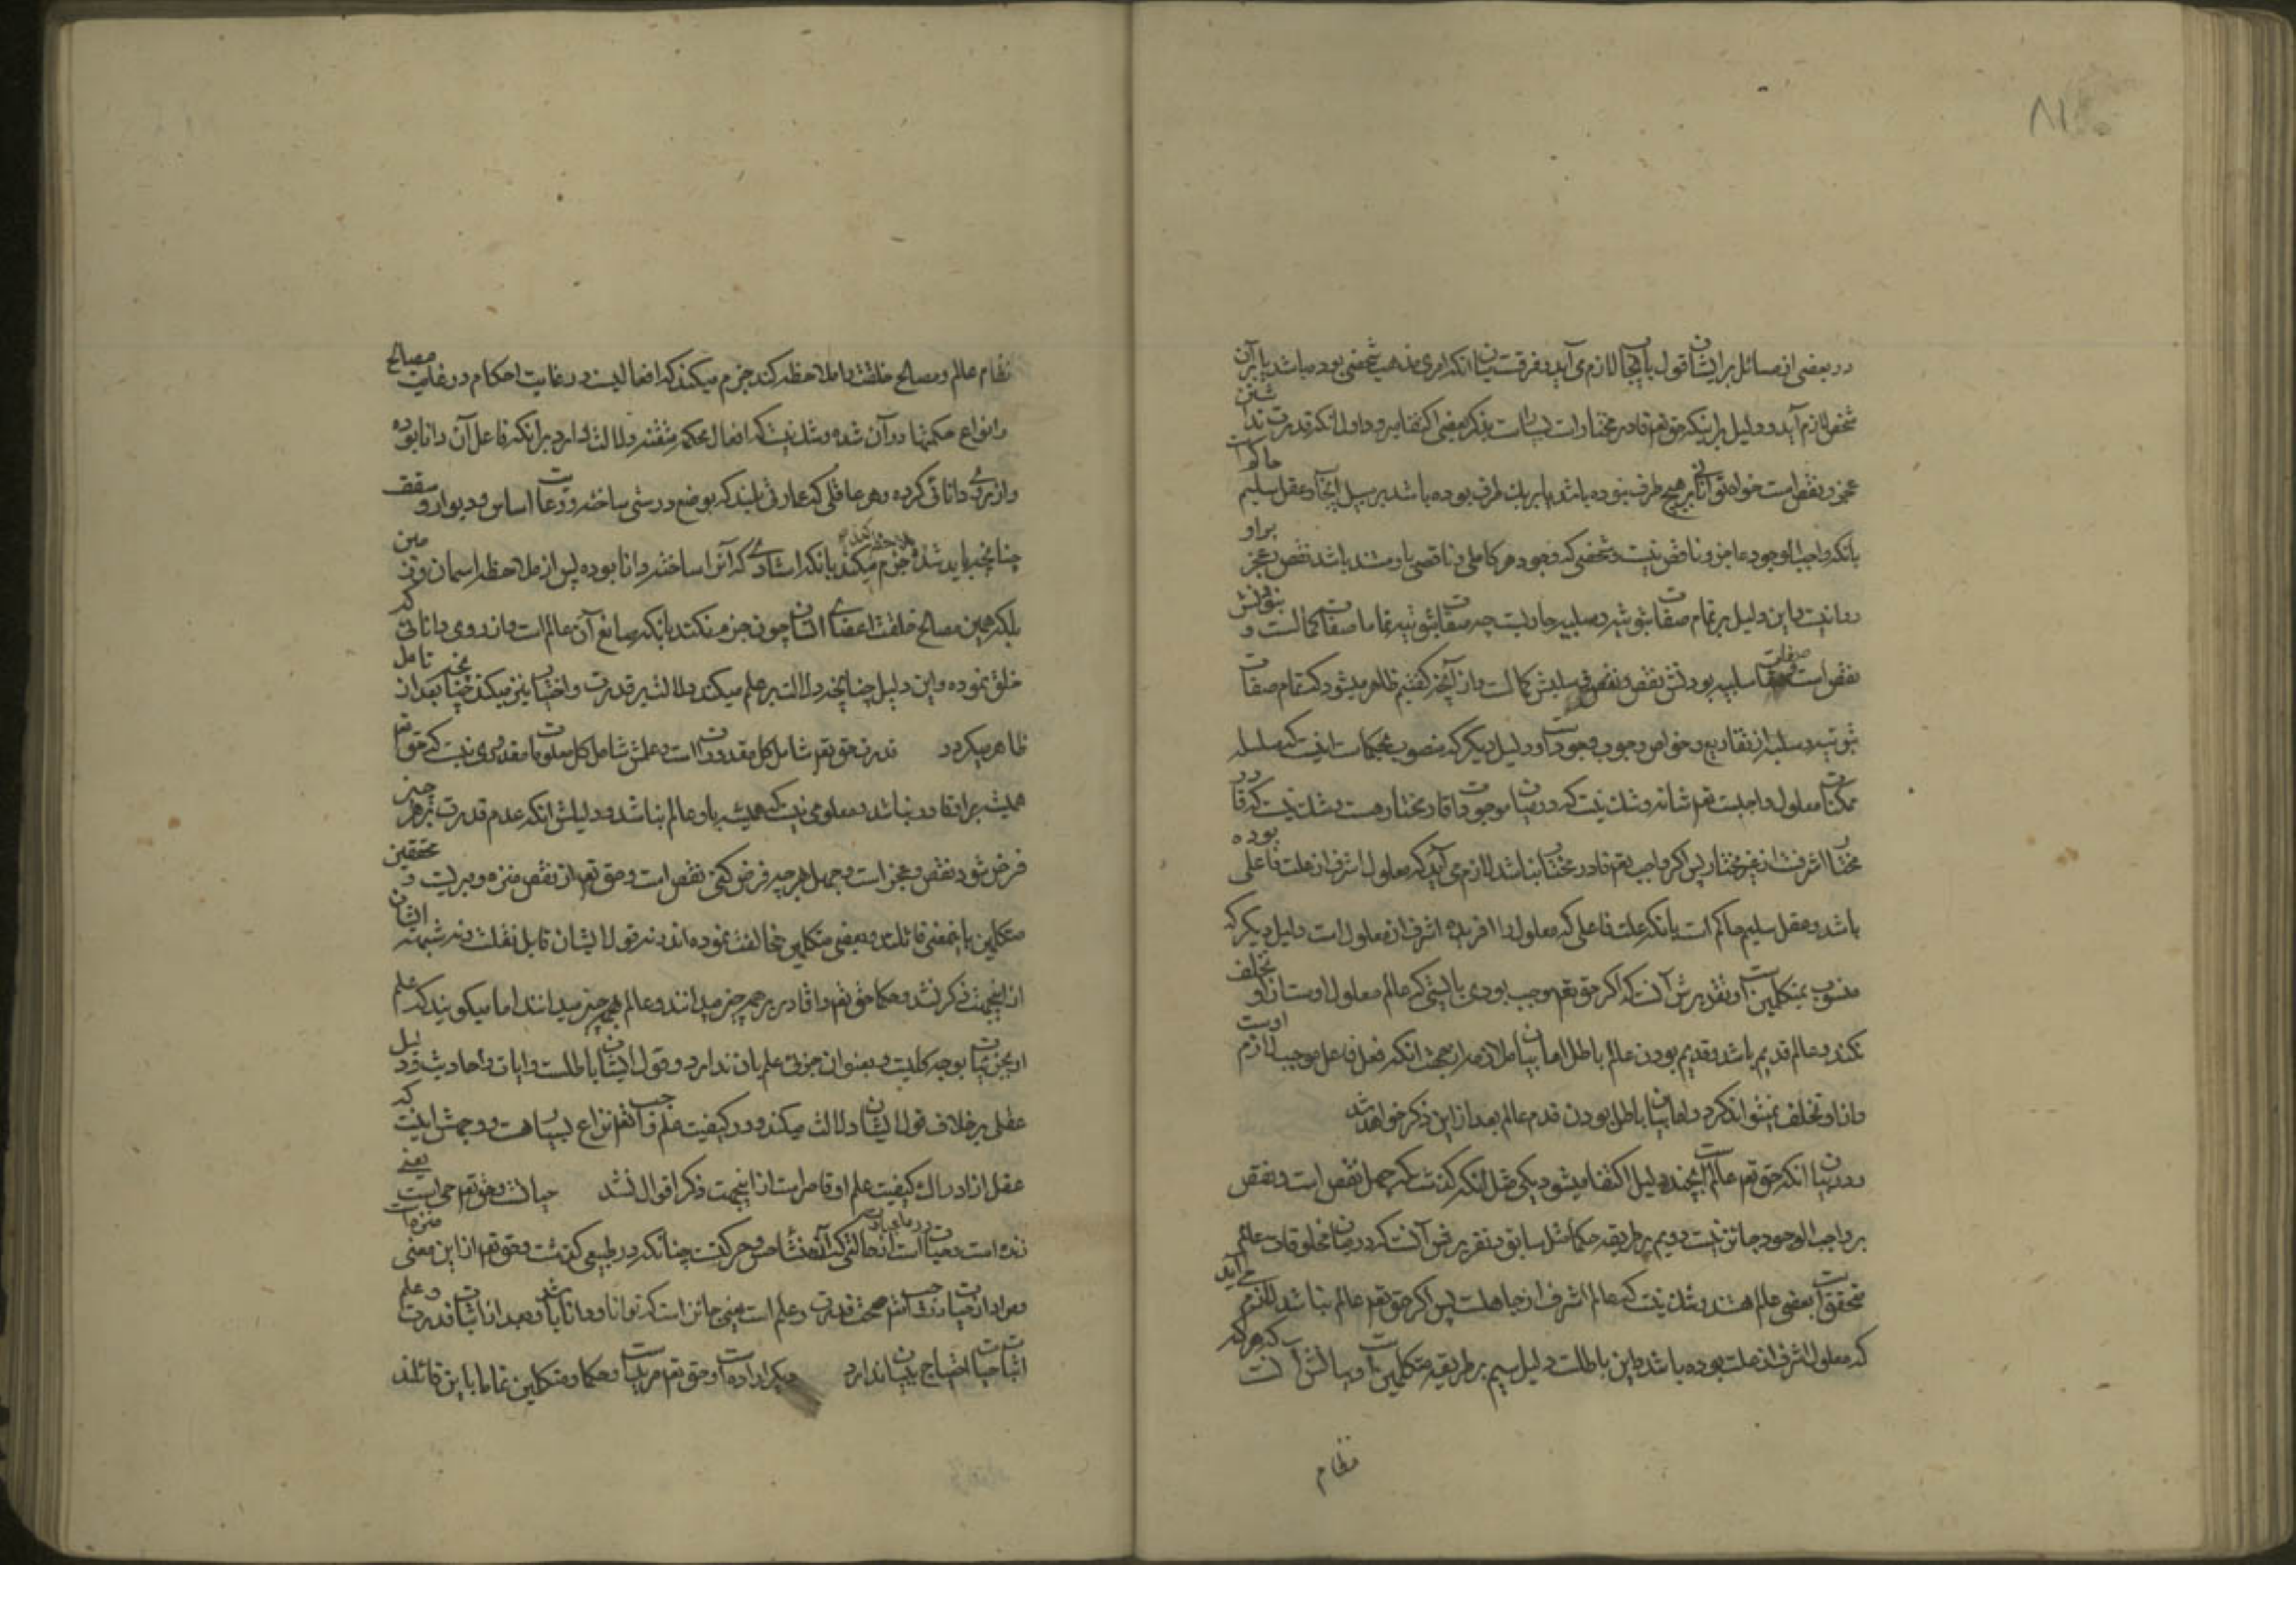 ۸۱
در بعضی از مسائل بر ایشان قول بایجاب لازم می آید و فرقست میان انکه امری مذهب شخصی بوده باشد یا بر آن
شخص لازم آید و دلیل بر اینکه حق تعم قادر مختار است بسیار است بذکر بعضی اکتفا میرود اول انکه قدرت نداشتن
عجز و نقص است خواه توانائی بر هیچ طرف نبوده باشد یا بر یک طرف بوده باشد بر سبیل ایجاب و عقل سلیم حاکم است
بانکه واجب الوجود عاجز و ناقص نیست و شخصی که وجود هر کاملی و ناقصی باو مستند باشد نقص و عجز بر او
روا نیست و این دلیل بر تمام صفات ثبوتیه و سلبیه جاریست چه صفات ثبوتیه تماما صفات کمالست و نبودنش
نقص است و صفات سلبیه بودنش نقص و نقص سلبش کمالست و از آنچه گفتیم ظاهر میشود که تمام صفات
ثبوتیه و سلبیه از تفاریع و خواص وجوب وجود است و دلیل دیگر که منصوب بحکماست اینست که سلسله
ممکنات معلول واجبست تعم شانه و شک نیست که در میان موجودات قادر مختار هست و شک نیست که قادر
مختار اشرفست از غیر مختار پس اگر واجب تعم قادر مختار نباشد لازم می آید که معلول اشرف از علت فاعلی بوده
باشد و عقل سلیم حاکم است بانکه علت فاعلی که معلول را افریده اشرف از معلول است دلیل دیگر که
منسوب بمتکلمین است و تقریرش آنست که اگر حق تعم موجب بودی بایستی که عالم معلول اوست از او تخلف
نکند و عالم قدیم باشد و قدیم بودن عالم باطل اما بیان ملازمه از جهت انکه فعل فاعل موجب لازم اوست
و از او تخلف نمیتواند کرد و اما بیان باطل بودن قدم عالم بعد از این ذکر خواهد شد
در بیان انکه حق تعم عالم است بچند دلیل اکتفا میشود یکی مثل انکه گذشت که جهل نقص است و نقص
بر واجب الوجود جایز نیست دویم بر طریقه حکما مثل سابق و تقریرش آنست که در میان مخلوقات عالم
متحقق است بعضی عالم هستند و شک نیست که عالم اشرف از جاهلست پس اگر حق تعم عالم نباشد لازم می آید
که معلول اشرف از علت بوده باشد و این باطلست دلیل سیم بر طریقه متکلمین است و بیانش آنست که هر که
نظام
نظام عالم و مصالح خلقت را ملاحظه کند جزم میکند که افعالیست در غایت احکام و رعایت مصالح
و انواع حکمتها در آن شده و شک نیست که افعال محکمه متقنه دلالت دارد بر انکه فاعل آن دانا بوده
و از روی دانائی کرده و هر عاقلی که عمارتی بیند که بوضع درستی ساخته و رعایت اساس و دیوار و سقف
چنانچه باید شده ملاحظه کند جزم میکند بانکه استادی که آنرا ساخته دانا بوده پس از ملاحظه اسمان و زمین
بلکه همین مصالح خلقت اعضای انسان چون جزم نکند بانکه صانع آن عالم است و از روی دانائی که
خلق نموده و این دلیل چنانچه دلالت بر علم میکند دلالت بر قدرت و اختیار نیز میکند چنانچه بعد از تامل
ظاهر میگردد قدرت حق تعم شامل کل مقدورات است و علمش شامل کل معلومات مقدوری نیست که حق تعم
همیشه بر او قادر نباشد و معلومی نیست که همیشه باو عالم نباشد و دلیلش انکه عدم قدرت بر هر چیز
فرض شود نقص و عجز است و جهل بهر چه فرض کنی نقص است و حق تعم از نقص منزه و مبریست و محققین
متکلمین باینمعنی قائلند و بعضی متکلمین مخالفت نموده اند و نه قول ایشان قابل نقلست و نه شبهه ایشان
از اینجهت ذکر نشد و حکما حق تعم را قادر بر همه چیز میدانند و عالم بهمه چیز میدانند اما میگویند که علم
او بجزئیات بوجه کلیست و بعنوان جزئی علم بان ندارد و قول ایشان باطلست و ایات و احادیث و دلیل
عقلی بر خلاف قول ایشان دلالت میکند و در کیفیت علم واجب تعم نزاع بسیار هست و وجهش اینست که
عقل از ادراک کیفیت علم او قاصر است از اینجهت ذکر اقوال نشد حیاتست و حق تعم حی است یعنی
زنده است و حیات در ما عبارت است از حالتی که منشأ حس و حرکتست چنانکه در طبیعی گذشت و حق تعم از این معنی منزه است
و مراد از حیات در شأن واجب تعم صحت قدرت و علم است یعنی جایز است که توانا و دانا باشد و بعد از اثبات قدرت و علم
اثبات حیات احتیاج ببیان ندارد دیگر اراده است و حق تعم مرید است و حکما و متکلمین تماما باین قائلند